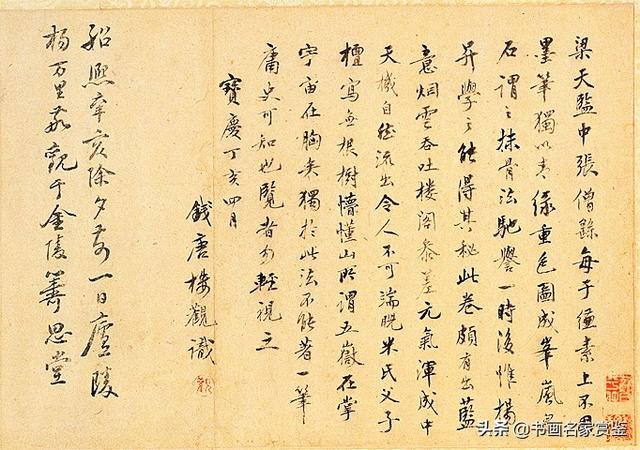 梁天監中張僧繇每于縑素上不用
墨筆獨以青綠重色圖成峯嵐泉
石謂之抹骨法馳譽一時後惟楊
昇學之能得其秘此卷頗有出藍
意烟雲吞吐楼閣參差元氣渾成中
天機自然流出令人不可端睨米氏父子
檀寫無根樹懵懂山所謂五嶽在掌
宇宙在胸矣獨於此法不能著一筆
庸史可知也覽者勿輕視之
寶慶丁亥四月
錢唐楼觀識
紹熙辛亥除夕前一日廬陵
楊万里敬觀于金陵籌思堂
头条 @书画名家赏鉴